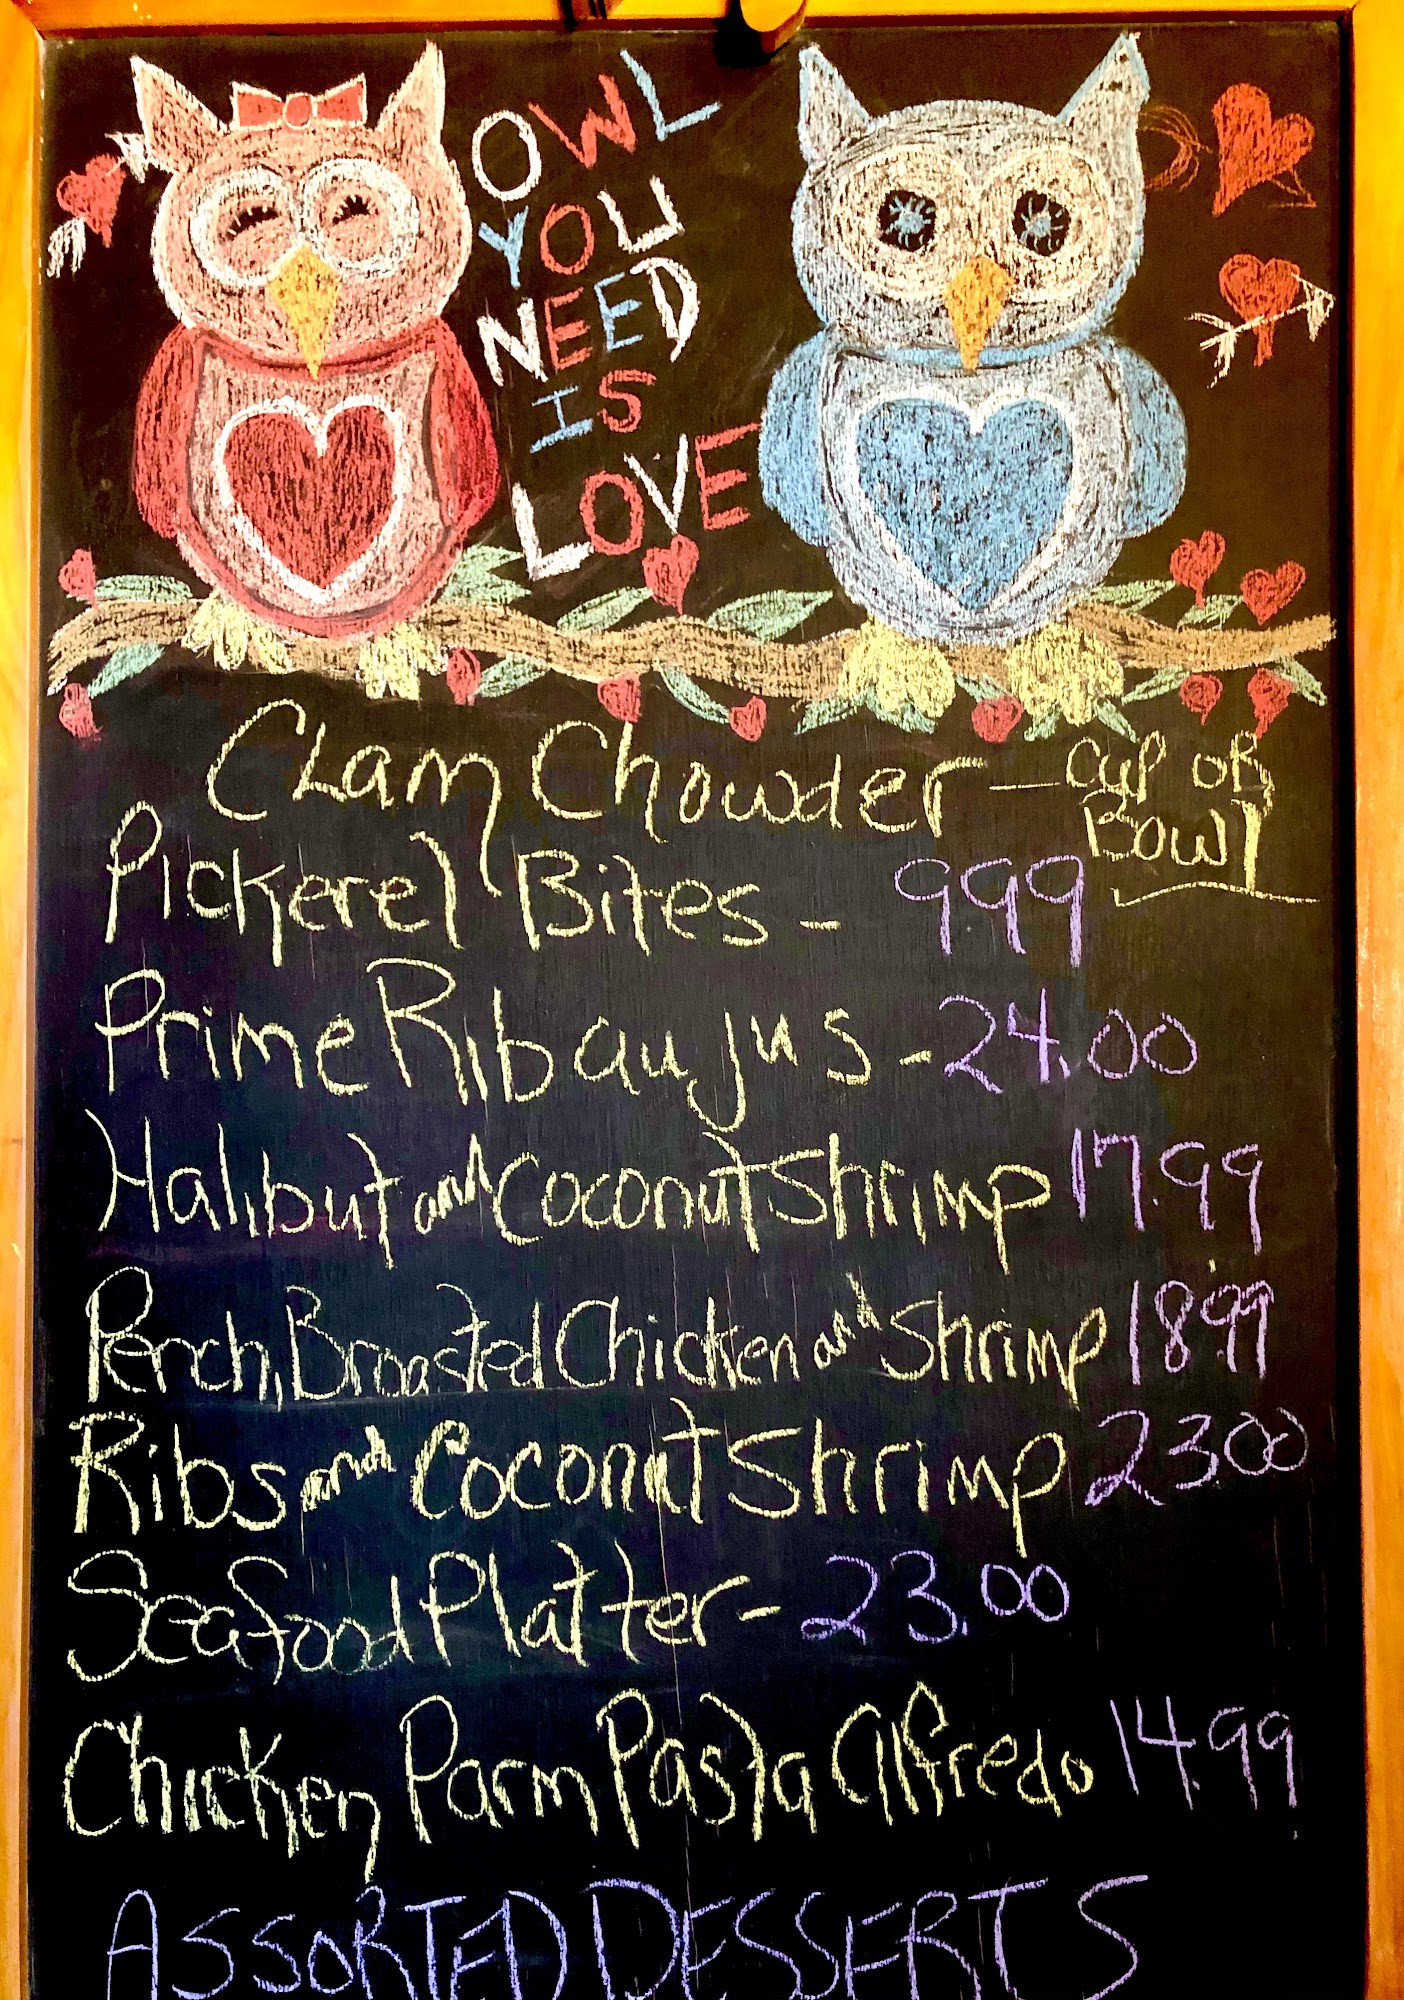 OWL
YOU
NEED
IS
LOVE
Clam Chowder — Cup or
Bowl
Pickerel Bites - 999
Prime Rib au jus - 24.00
Halibut and Coconut Shrimp 17.99
Perch, Broasted Chicken and Shrimp 18.99
Ribs and Coconut Shrimp 23.00
Seafood Platter - 23.00
Chicken Parm Pasta Alfredo 14.99
ASSORTED DESSERTS